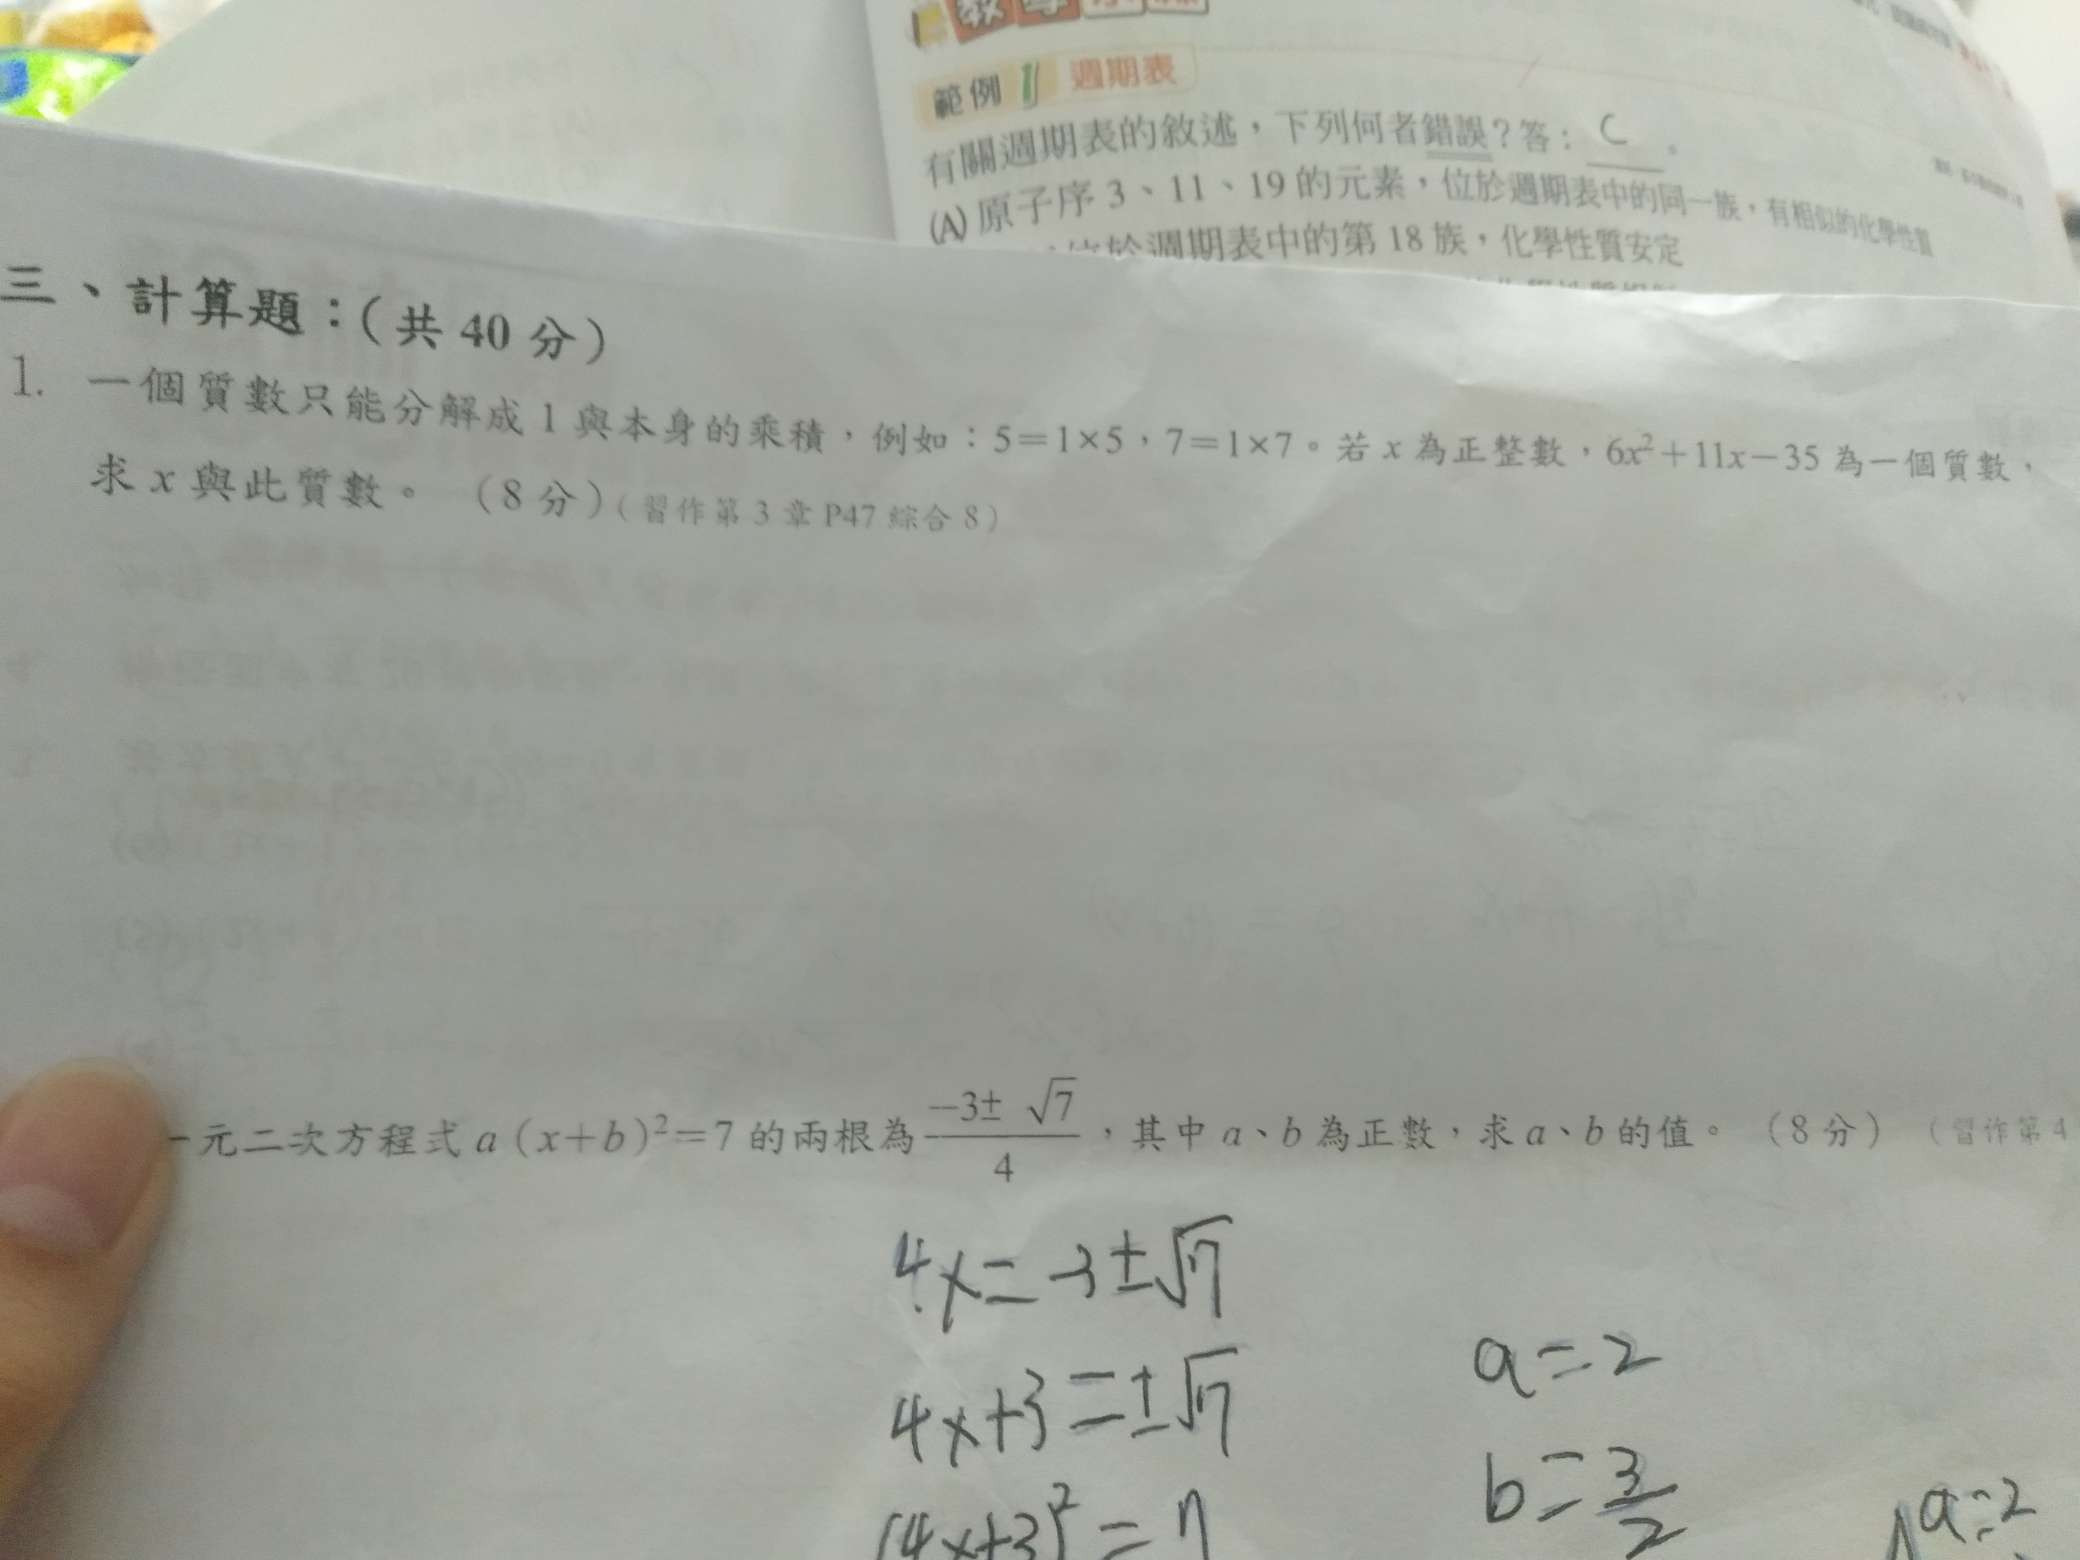 範例 1 週期表
有關週期表的敘述，下列何者錯誤？答：C。
(A)原子序 3、11、19 的元素，位於週期表中的同一族，有相似的化學性質
位於週期表中的第 18 族，化學性質安定
三、計算題：（共 40 分）
1. 一個質數只能分解成 1 與本身的乘積，例如：5＝1×5，7＝1×7。若 x 為正整數，6x²＋11x－35 為一個質數，
求 x 與此質數。（8 分）（習作第 3 章 P47 綜合 8）
一元二次方程式 a（x＋b）²＝7 的兩根為 (−3± √7)/4，其中 a、b 為正數，求 a、b 的值。（8 分）（習作第 4
4x=-3±√7
4x+3=±√7
(4x+3)²=7
a=2
b=3/2
a=2